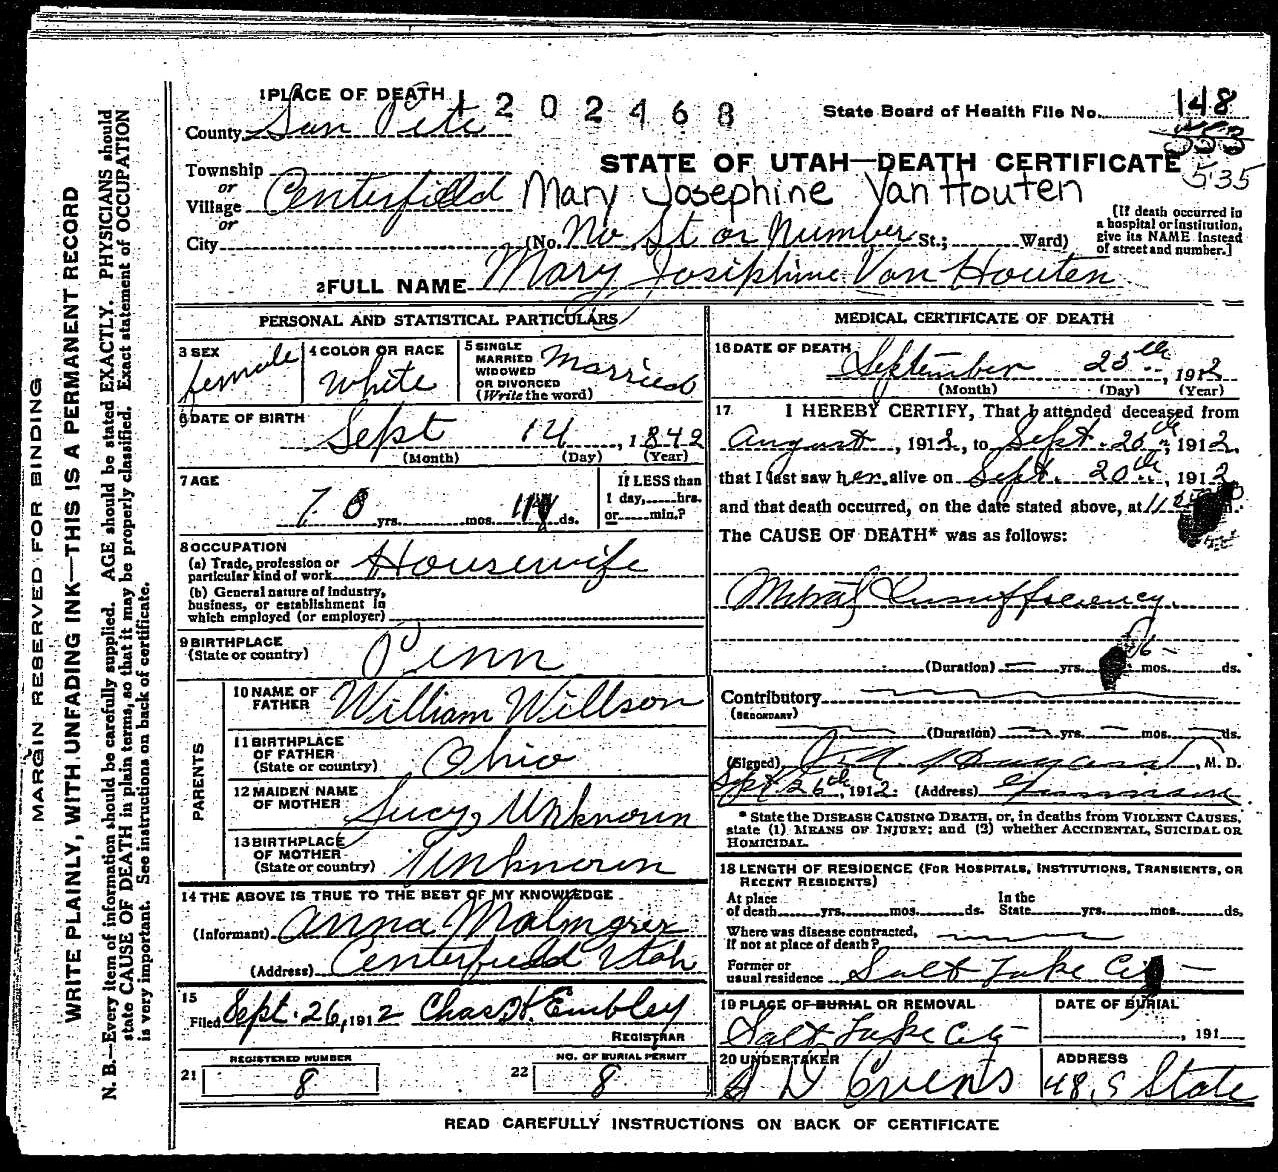 1 PLACE OF DEATH 1202468 State Board of Health File No. 148
County San Pete 553
STATE OF UTAH—DEATH CERTIFICATE 535
Township
or
Village Centerfield Mary Josephine Van Houten
or
City (No. No St or Number St.; Ward)
[If death occurred in a hospital or institution, give its NAME instead of street and number.]
2 FULL NAME Mary Josiphine Van Houten
PERSONAL AND STATISTICAL PARTICULARS
3 SEX female
4 COLOR OR RACE White
5 SINGLE MARRIED WIDOWED OR DIVORCED (Write the word) Married
6 DATE OF BIRTH Sept 14, 1842
(Month) (Day) (Year)
7 AGE
70 yrs. mos. ds.
If LESS than 1 day, hrs. or min.?
8 OCCUPATION
(a) Trade, profession or particular kind of work Housewife
(b) General nature of industry, business, or establishment in which employed (or employer)
9 BIRTHPLACE
(State or country) Penn
PARENTS
10 NAME OF FATHER William Willson
11 BIRTHPLACE OF FATHER (State or country) Ohio
12 MAIDEN NAME OF MOTHER Lucy Unknown
13 BIRTHPLACE OF MOTHER (State or country) Unknown
14 THE ABOVE IS TRUE TO THE BEST OF MY KNOWLEDGE
(Informant) Anna Malmgren
(Address) Centerfield Utah
15
Filed Sept. 26, 1912 Chas. H. Embley
REGISTRAR
21 REGISTERED NUMBER 8
22 NO. OF BURIAL PERMIT 8
MEDICAL CERTIFICATE OF DEATH
16 DATE OF DEATH September 25th, 1912
(Month) (Day) (Year)
17 I HEREBY CERTIFY, That I attended deceased from
August, 1912, to Sept. 20th, 1912,
that I last saw her alive on Sept. 20th, 1912
and that death occurred, on the date stated above, at 11 m.
The CAUSE OF DEATH* was as follows:
Mitral Insufficiency
(Duration) — yrs. 6 — mos. ds.
Contributory
(SECONDARY)
(Duration) yrs. mos. ds.
(Signed) , M. D.
Sept 26th, 1912. (Address) Gunnison
* State the DISEASE CAUSING DEATH, or, in deaths from VIOLENT CAUSES, state (1) MEANS OF INJURY; and (2) whether ACCIDENTAL, SUICIDAL OR HOMICIDAL.
18 LENGTH OF RESIDENCE (FOR HOSPITALS, INSTITUTIONS, TRANSIENTS, OR RECENT RESIDENTS)
At place of death yrs. mos. ds. In the State yrs. mos. ds.
Where was disease contracted, if not at place of death?
Former or usual residence Salt Lake City —
19 PLACE OF BURIAL OR REMOVAL Salt Lake City
DATE OF BURIAL , 191
20 UNDERTAKER S D Evens
ADDRESS 48, S State
READ CAREFULLY INSTRUCTIONS ON BACK OF CERTIFICATE
MARGIN RESERVED FOR BINDING
WRITE PLAINLY, WITH UNFADING INK—THIS IS A PERMANENT RECORD
N. B.—Every item of information should be carefully supplied. AGE should be stated EXACTLY. PHYSICIANS should
state CAUSE OF DEATH in plain terms, so that it may be properly classified. Exact statement of OCCUPATION
is very important. See instructions on back of certificate.